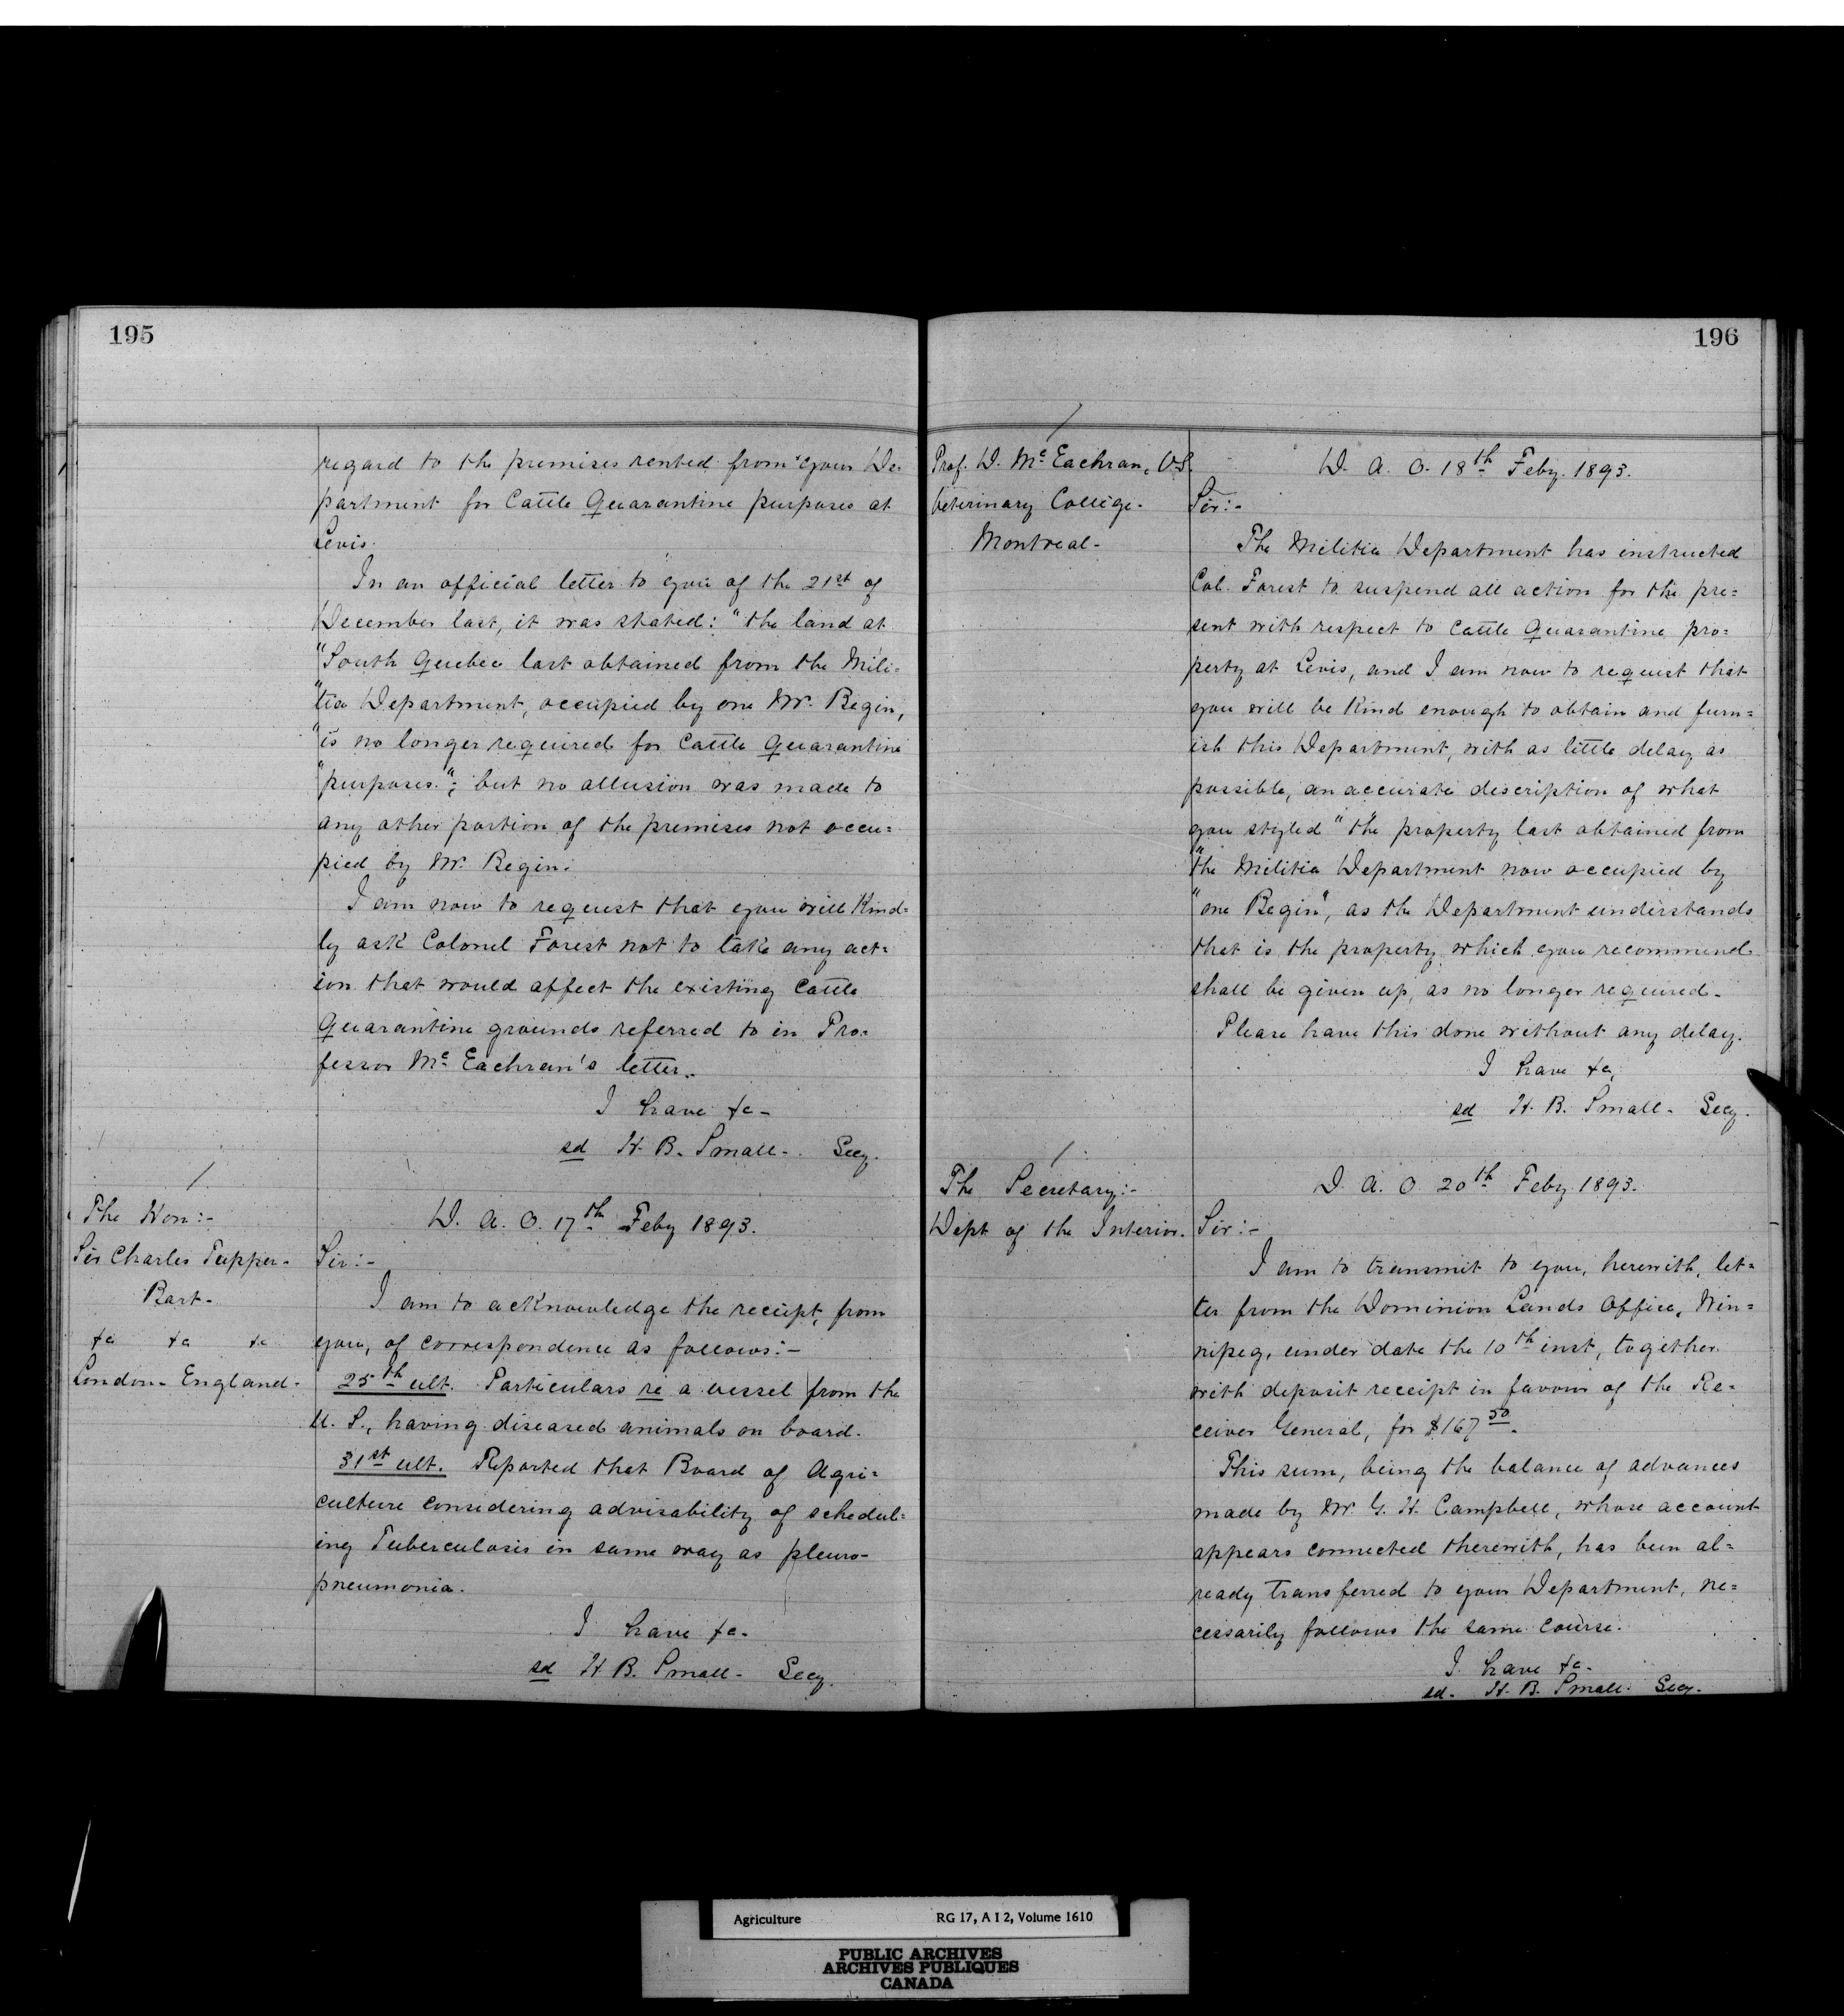 195
regard to the premises rented from your De-
partment for Cattle Quarantine purposes at
Levis.
In an official letter to you of the 21st of
December last, it was stated: "the land at
"South Quebec last obtained from the Mili=
"tia Department, occupied by one Mr. Begin,
"is no longer required for Cattle Quarantine
"purposes."; but no allusion was made to
any other portion of the premises not occu=
pied by Mr. Begin.
I am now to request that you will Kind=
ly ask Colonel Forest not to take any act=
ion that would affect the existing Cattle
Quarantine grounds referred to in Pro=
fessor Mc Eachran's letter.
I have &c-
sd H. B. Small- Secy.
The Hon:-
Sir Charles Tupper-
Bart-
&c &c &c
London- England-
D. A. O. 17th Feby 1893.
Sir:-
I am to acknowledge the receipt, from
you, of correspondence as follows:-
25th ult. Particulars re a vessel from the
U. S., having diseased animals on board.
31st ult. Reported that Board of Agri=
culture considering advisability of schedul=
ing Tuberculosis in same way as pleuro-
pneumonia.
I have &c-
sd H. B. Small- Secy.
196
Prof. D. Mc Eachran, V.S.
Veterinary College-
Montreal-
D. A. O. 18th Feby. 1893.
Sir:-
The Militia Department has instructed
Col. Forest to suspend all action for the pre=
sent with respect to Cattle Quarantine pro=
perty at Levis, and I am now to request that
you will be Kind enough to obtain and furn=
ish this Department, with as little delay as
possible, an accurate description of what
you styled "the property last obtained from
"the Militia Department now occupied by
"one Begin", as the Department understands
that is the property which you recommend
shall be given up, as no longer required-
Please have this done without any delay.
I have &c,
sd H. B. Small- Secy.
The Secretary:-
Dept of the Interior.
D. A. O. 20th Feby. 1893.
Sir:-
I am to transmit to you, herewith, let=
ter from the Dominion Lands Office, Win=
nipeg, under date the 10th inst, together
with deposit receipt in favour of the Re=
ceiver General, for $167 50.
This sum, being the balance of advances
made by Mr. G. H. Campbell, whose account
appears connected therewith, has been al=
ready transferred to your Department, ne=
cessarily follows the same course.
I have &c-
sd- H. B. Small- Secy-
Agriculture RG 17, A I 2, Volume 1610
PUBLIC ARCHIVES
ARCHIVES PUBLIQUES
CANADA